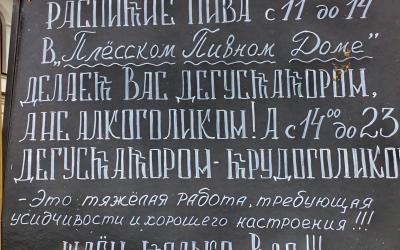 РАСПИТИЕ ПИВА с 11 до 14
В „Плёсском Пивном Доме"
ДЕЛАЕТ ВАС ДЕГУСТАТОРОМ,
А НЕ АЛКОГОЛИКОМ! А с 14⁰⁰ до 23
ДЕГУСТАТОРОМ-ТРУДОГОЛИКО
- Это тяжёлая работа, требующая
усидчивости и хорошего настроения!!!
ЖДЁМ ТОЛЬКО ВАС!!!